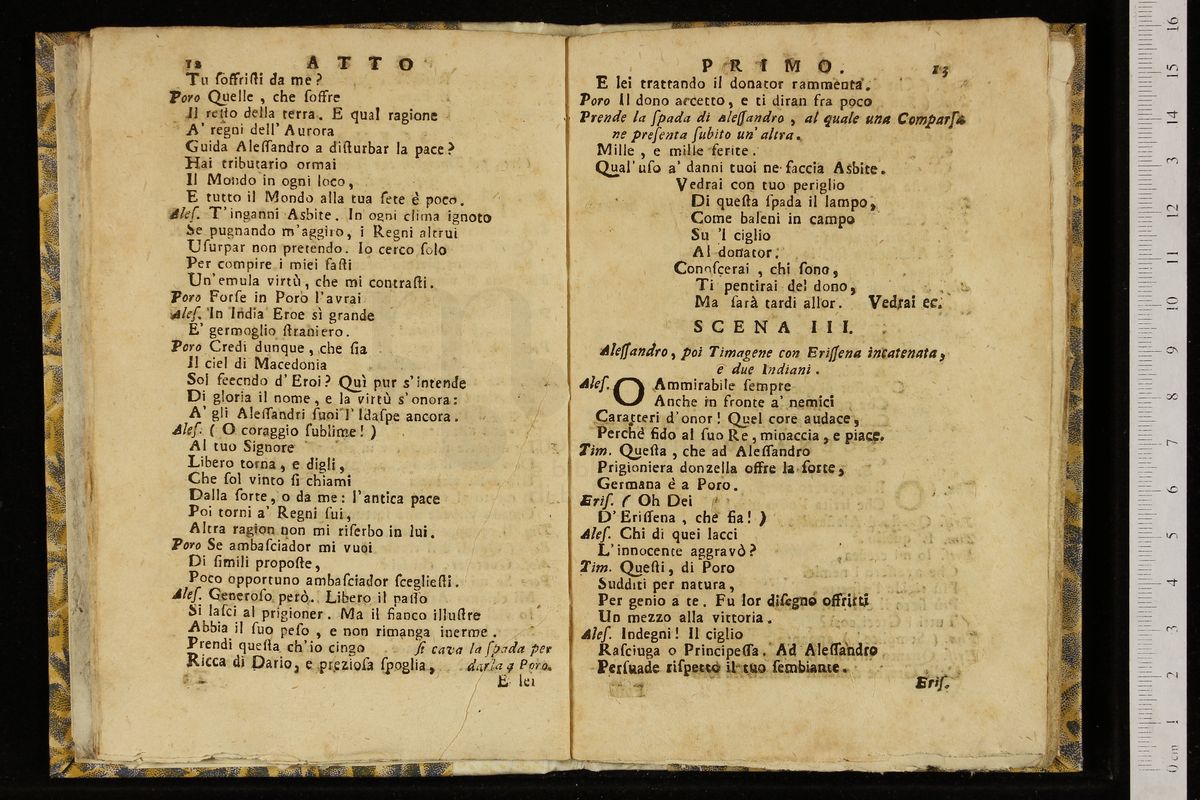 12 ATTO
Tu soffristi da me?
Poro Quelle, che soffre
Il resto della terra. E qual ragione
A' regni dell' Aurora
Guida Alessandro a disturbar la pace?
Hai tributario ormai
Il Mondo in ogni loco,
E tutto il Mondo alla tua sete è poco.
Ales. T'inganni Asbite. In ogni clima ignoto
Se pugnando m'aggiro, i Regni altrui
Usurpar non pretendo. Io cerco solo
Per compire i miei fasti
Un'emula virtù, che mi contrasti.
Poro Forse in Poro l'avrai
Ales. In India Eroe sì grande
E' germoglio straniero.
Poro Credi dunque, che sia
Il ciel di Macedonia
Sol feecndo d'Eroi? Quì pur s'intende
Di gloria il nome, e la virtù s'onora:
A' gli Alessandri suoi l'Idaspe ancora.
Ales. ( O coraggio sublime! )
Al tuo Signore
Libero torna, e digli,
Che sol vinto si chiami
Dalla sorte, o da me: l'antica pace
Poi torni a' Regni sui,
Altra ragion non mi riserbo in lui.
Poro Se ambasciador mi vuoi
Di simili proposte,
Poco opportuno ambasciador scegliesti.
Ales. Generoso però. Libero il passo
Si lasci al prigioner. Ma il fianco illustre
Abbia il suo peso, e non rimanga inerme.
Prendi questa ch'io cingo si cava la spada per
Ricca di Dario, e preziosa spoglia, darla a Poro.
E lei
PRIMO. 13
E lei trattando il donator rammenta.
Poro Il dono accetto, e ti diran fra poco
Prende la spada di Alessandro, al quale una Comparsa
ne presenta subito un'altra.
Mille, e mille ferite.
Qual'uso a' danni tuoi ne faccia Asbite.
Vedrai con tuo periglio
Di questa spada il lampo,
Come baleni in campo
Su 'l ciglio
Al donator.
Conoscerai, chi sono,
Ti pentirai del dono,
Ma sarà tardi allor. Vedrai ec.
SCENA III.
Alessandro, poi Timagene con Erissena incatenata,
e due Indiani.
Ales. O Ammirabile sempre
Anche in fronte a' nemici
Caratteri d'onor! Quel core audace,
Perchè fido al suo Re, minaccia, e piace.
Tim. Questa, che ad Alessandro
Prigioniera donzella offre la sorte,
Germana è a Poro.
Eris. ( Oh Dei
D'Erissena, che fia! )
Ales. Chi di quei lacci
L'innocente aggravò?
Tim. Questi, di Poro
Sudditi per natura,
Per genio a te. Fu lor disegno offrirti
Un mezzo alla vittoria.
Ales. Indegni! Il ciglio
Rasciuga o Principessa. Ad Alessandro
Persuade rispetto il tuo sembiante.
Eris.
0 cm 1 2 3 4 5 6 7 8 9 10 11 12 13 14 15 16